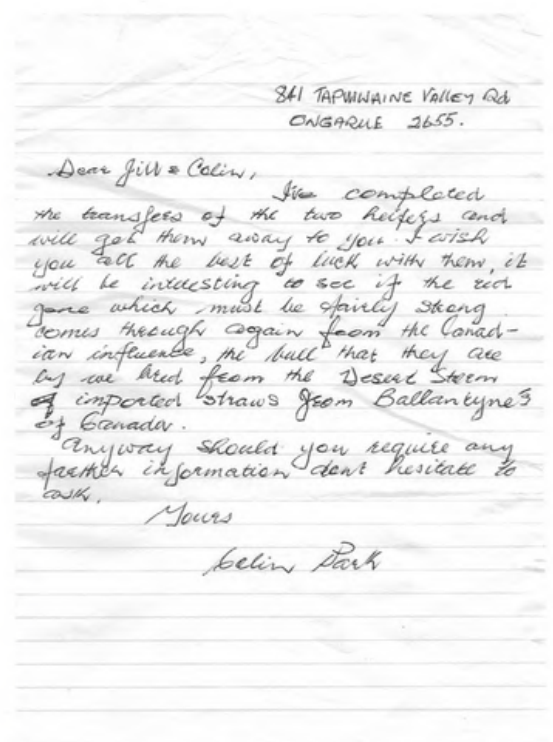 841 TAPUIWAINE VALLEY Rd
ONGARUE 2655.
Dear Jill & Colin,
I've completed
the transfers of the two heifers and
will get them away to you. I wish
you all the best of luck with them, it
will be interesting to see if the red
gene which must be fairly strong
comes through again from the Canad-
ian influence, the bull that they are
by we bred from the Desert Storm
imported straws from Ballantyne's
of Canada.
Anyway should you require any
further information dont hesitate to
ask.
Yours
Colin Park